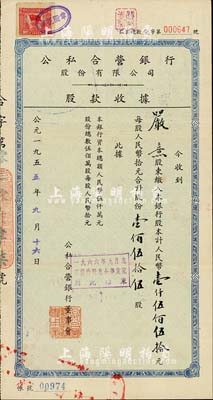 第000647號
公私合營銀行
股份有限公司
股款收據
今收到
嚴熹股東繳入本銀行股本計人民幣壹仟伍佰伍拾元
每股人民幣拾元合計股份壹佰伍拾伍股
此據
本銀行資本總額人民幣伍仟萬元
股份總數伍佰萬股每股人民幣拾元
公私合營銀行董事會
公元一九五五年九月十六日
帳號 00974